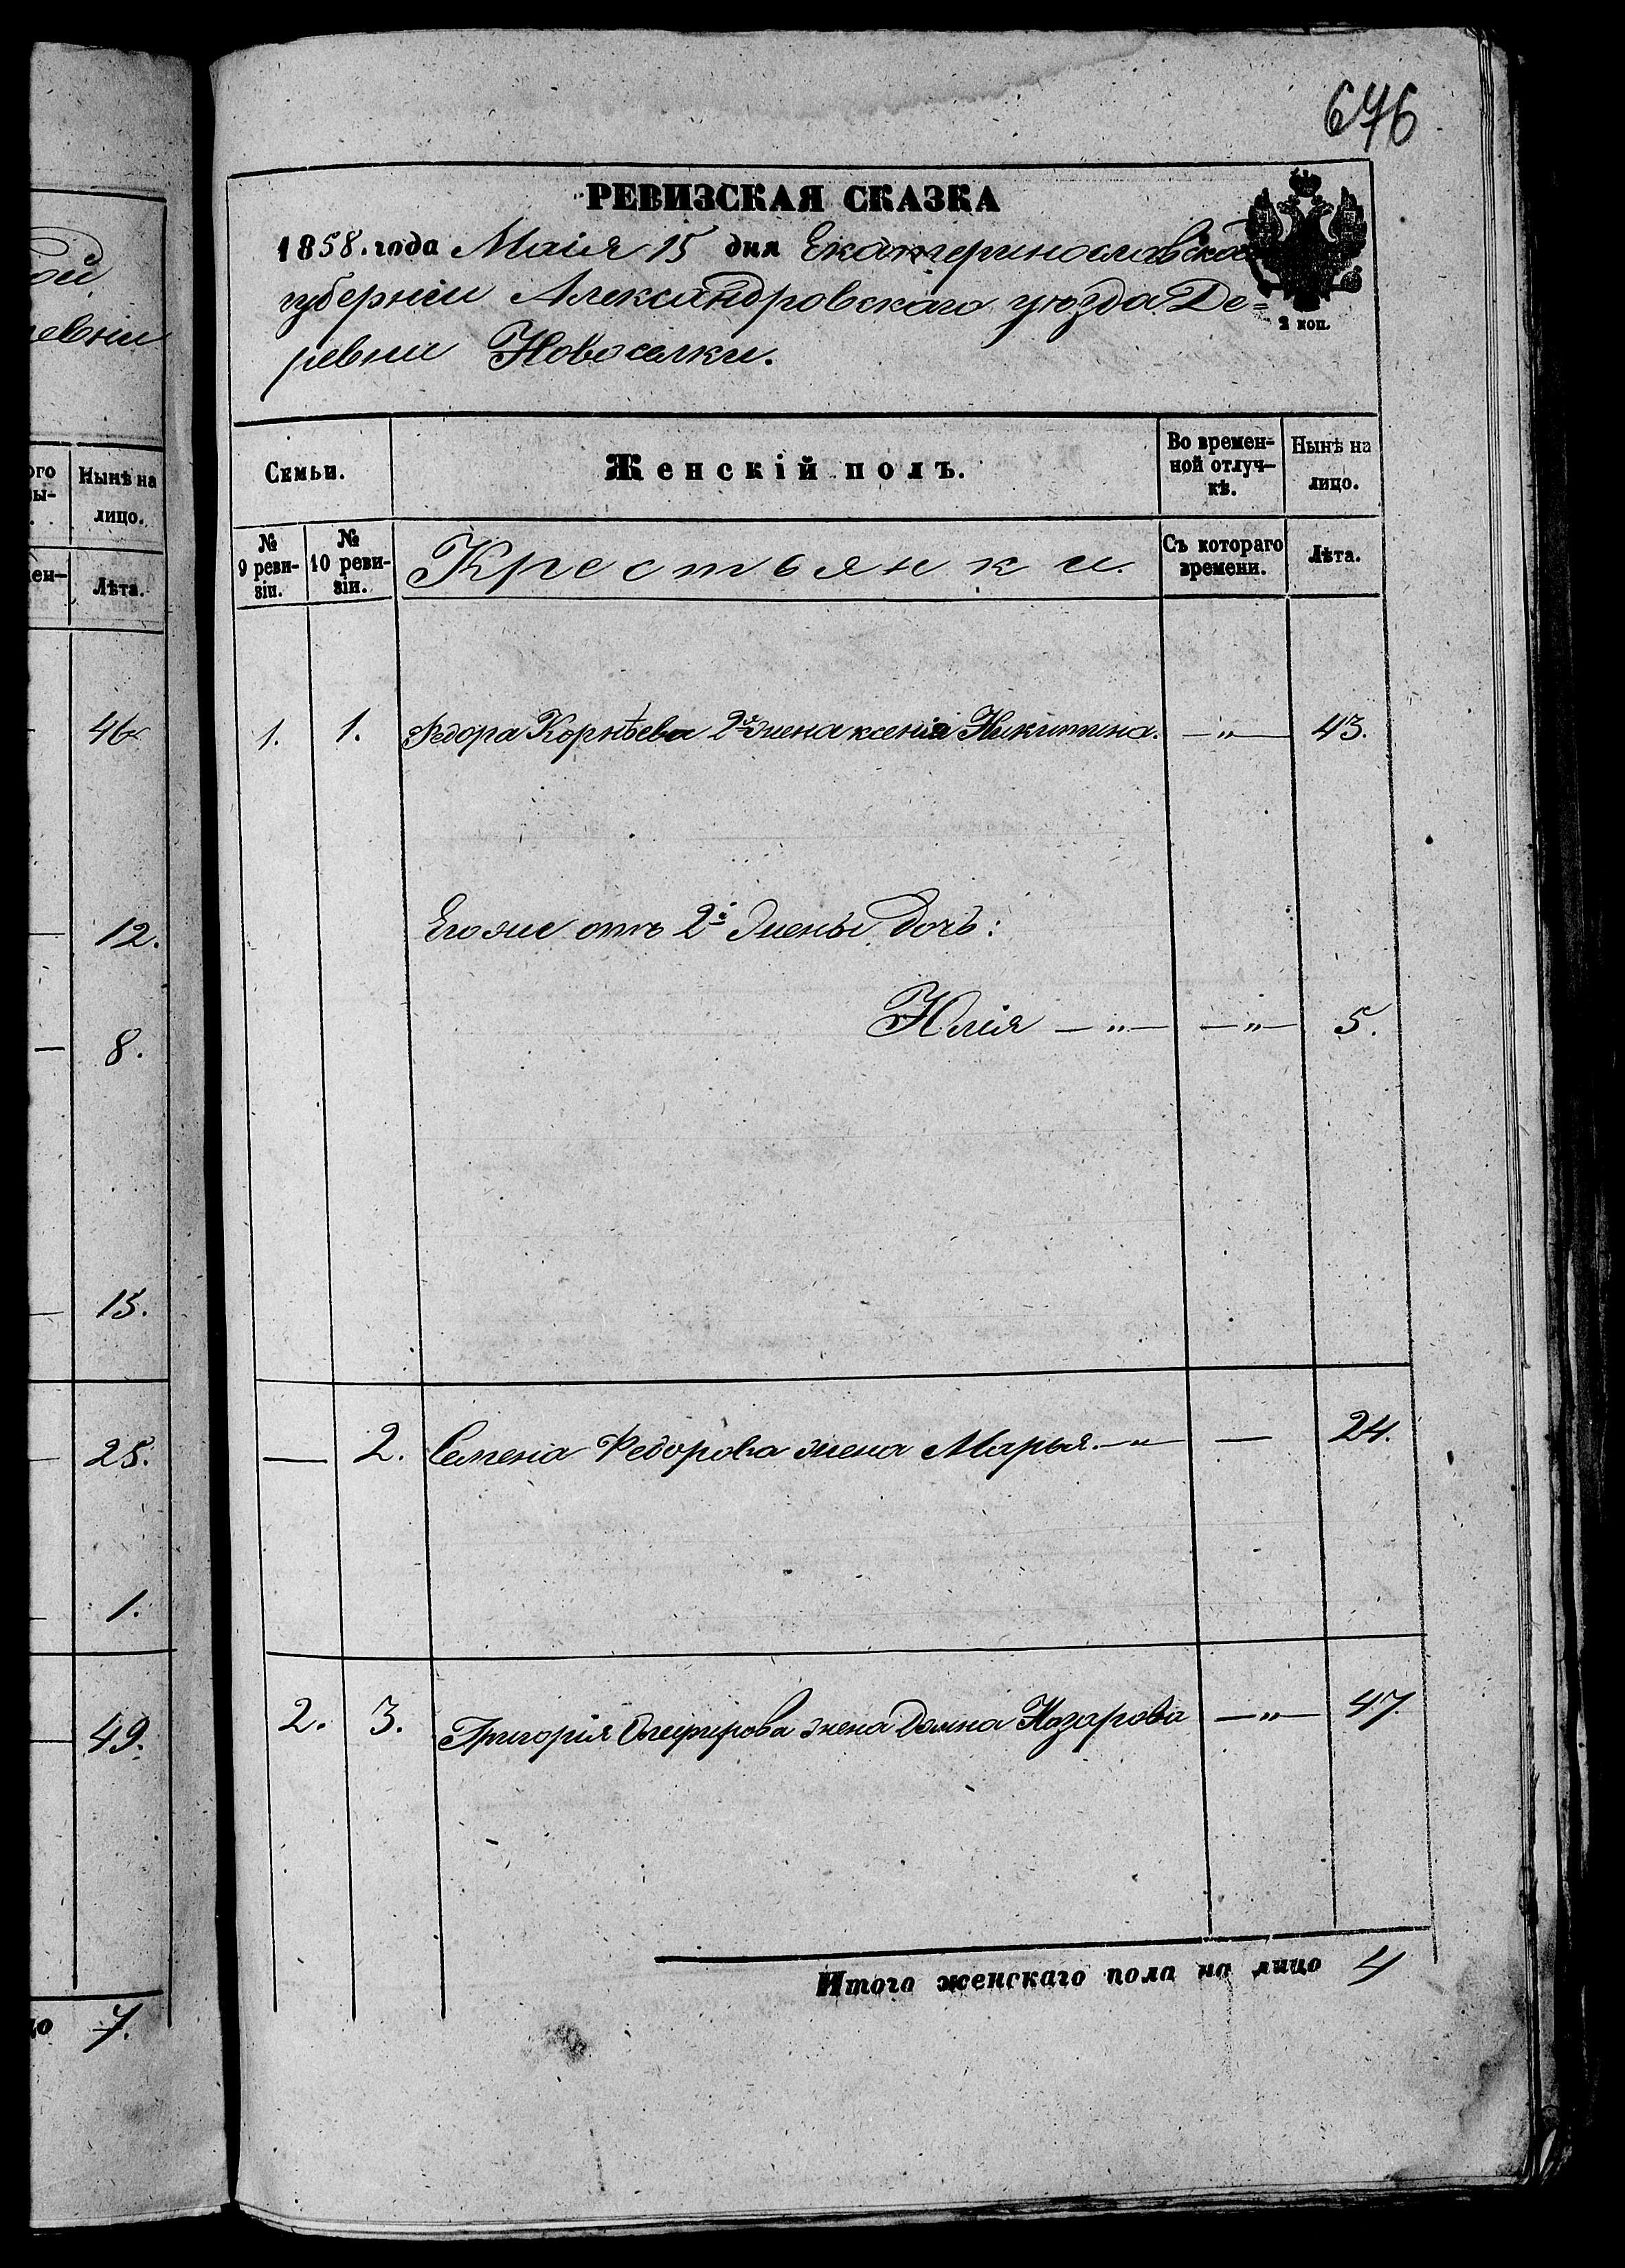 676
РЕВИЗСКАЯ СКАЗКА
1858. года Маія 15 дня Екатеринославской
губерніи Александровскаго уѣзда Де=
ревни Новоселки.
2 коп.
Семьи.
Женскій полъ.
Во времен-
ной отлуч-
кѣ.
Нынѣ на
лицо.
№
9 реви-
зіи.
№
10 реви-
зіи.
Крестьянки.
Съ котораго
времени.
Лѣта.
1. 1. Федора Корнѣева 2я жена ксенія Никитина. —„— 43.
Его же отъ 2й жены дочь:
Юлія —„— —„— 5.
— 2. Семена Федорова жена Марья. —„— — 24.
2. 3. Григорія жена Домна Назарова —„— 47.
Итого женскаго пола на лицо 4
ой
ревни
ого
вы-
Нынѣ на
лицо.
мен-
Лѣта.
46
12.
8.
15.
25.
1.
49.
цо 7.